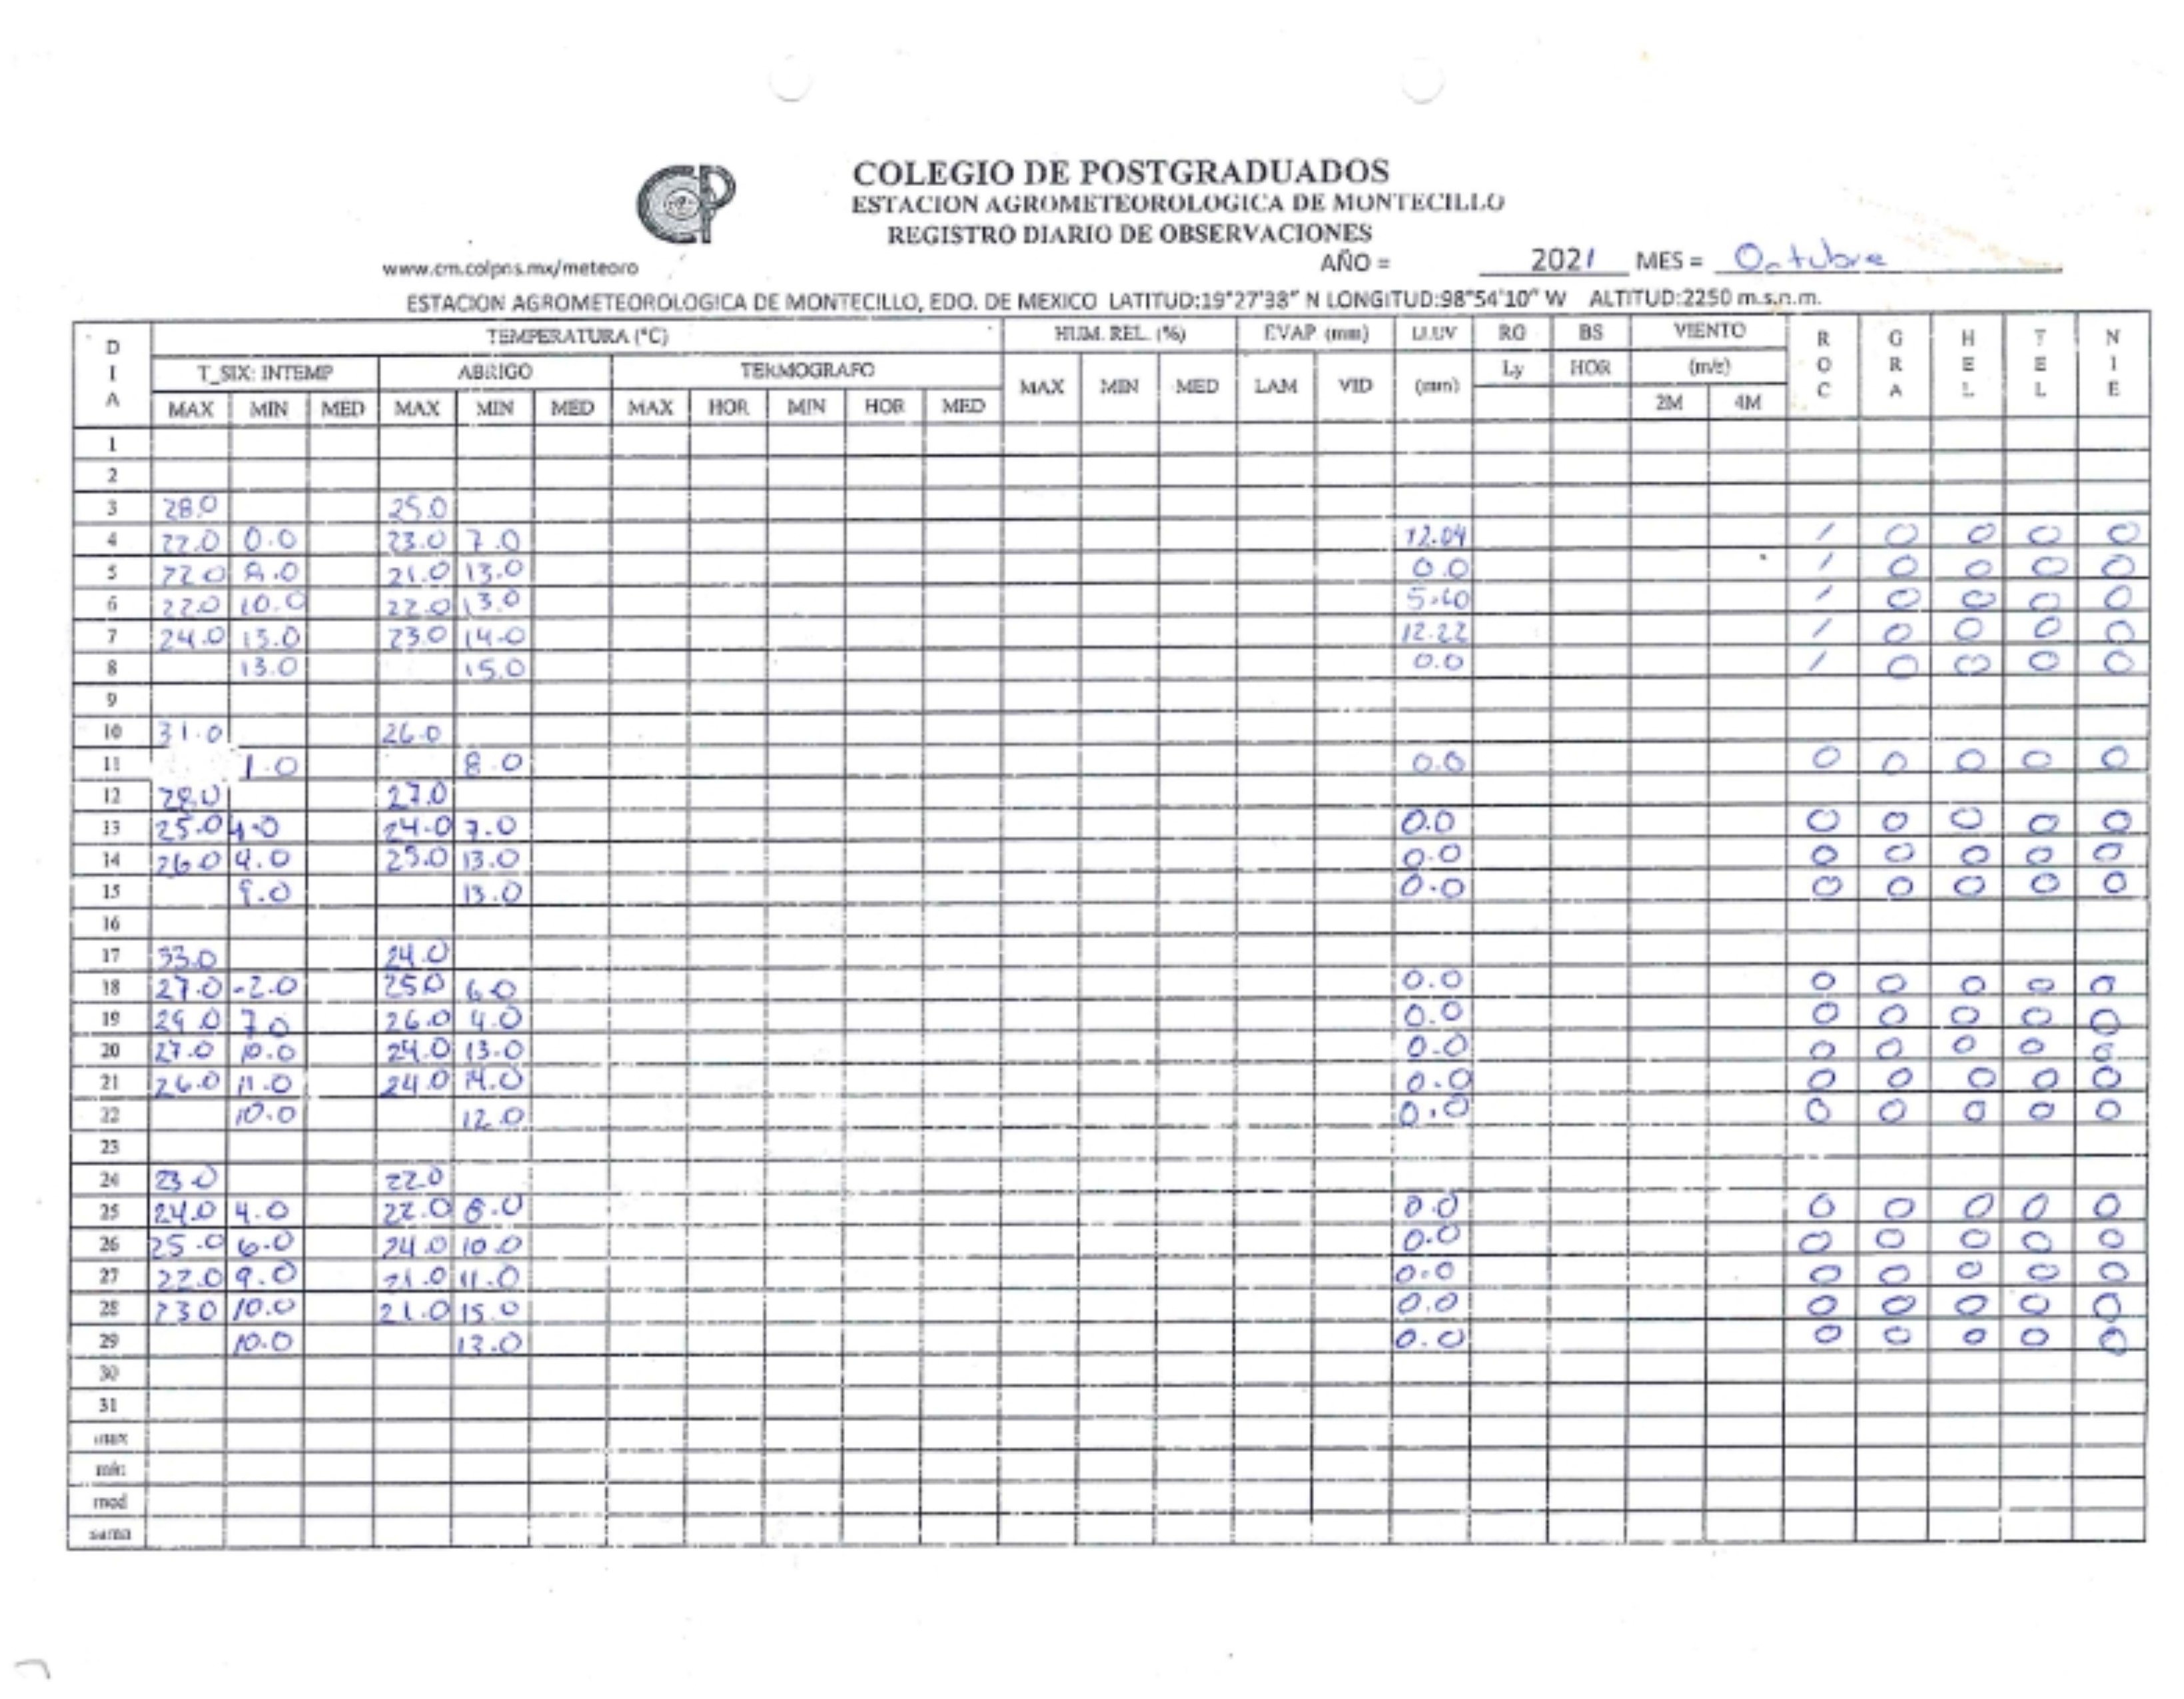 COLEGIO DE POSTGRADUADOS
ESTACION AGROMETEOROLOGICA DE MONTECILLO
REGISTRO DIARIO DE OBSERVACIONES
www.cm.colpns.mx/meteoro AÑO = 2021 MES = Octubre
ESTACION AGROMETEOROLOGICA DE MONTECILLO, EDO. DE MEXICO LATITUD:19°27'38" N LONGITUD:98°54'10" W ALTITUD:2250 m.s.n.m.
DIA TEMPERATURA (°C) HUM. REL. (%) EVAP (mm) LLUV RG BS VIENTO ROC GRA HEL TEL NIE
T_SIX: INTEMP ABRIGO TERMOGRAFO MAX MIN MED LAM VID (mm) Ly HOR (m/s)
MAX MIN MED MAX MIN MED MAX HOR MIN HOR MED 2M 4M
1
2
3 28.0 25.0
4 22.0 0.0 23.0 7.0 12.04 / 0 0 0 0
5 22.0 9.0 21.0 13.0 0.0 / 0 0 0 0
6 22.0 10.0 22.0 13.0 5.60 / 0 0 0 0
7 24.0 13.0 23.0 14.0 12.22 / 0 0 0 0
8 13.0 15.0 0.0 / 0 0 0 0
9
10 31.0 26.0
11 1.0 8.0 0.0 0 0 0 0 0
12 28.0 27.0
13 25.0 4.0 24.0 7.0 0.0 0 0 0 0 0
14 26.0 4.0 25.0 13.0 0.0 0 0 0 0 0
15 9.0 13.0 0.0 0 0 0 0 0
16
17 33.0 24.0
18 27.0 -2.0 25.0 6.0 0.0 0 0 0 0 0
19 29.0 7.0 26.0 4.0 0.0 0 0 0 0 0
20 27.0 10.0 24.0 13.0 0.0 0 0 0 0 0
21 26.0 11.0 24.0 14.0 0.0 0 0 0 0 0
22 10.0 12.0 0.0 0 0 0 0 0
23
24 23.0 22.0
25 24.0 4.0 22.0 8.0 0.0 0 0 0 0 0
26 25.0 6.0 24.0 10.0 0.0 0 0 0 0 0
27 22.0 9.0 21.0 11.0 0.0 0 0 0 0 0
28 23.0 10.0 21.0 15.0 0.0 0 0 0 0 0
29 10.0 13.0 0.0 0 0 0 0 0
30
31
max
min
med
suma